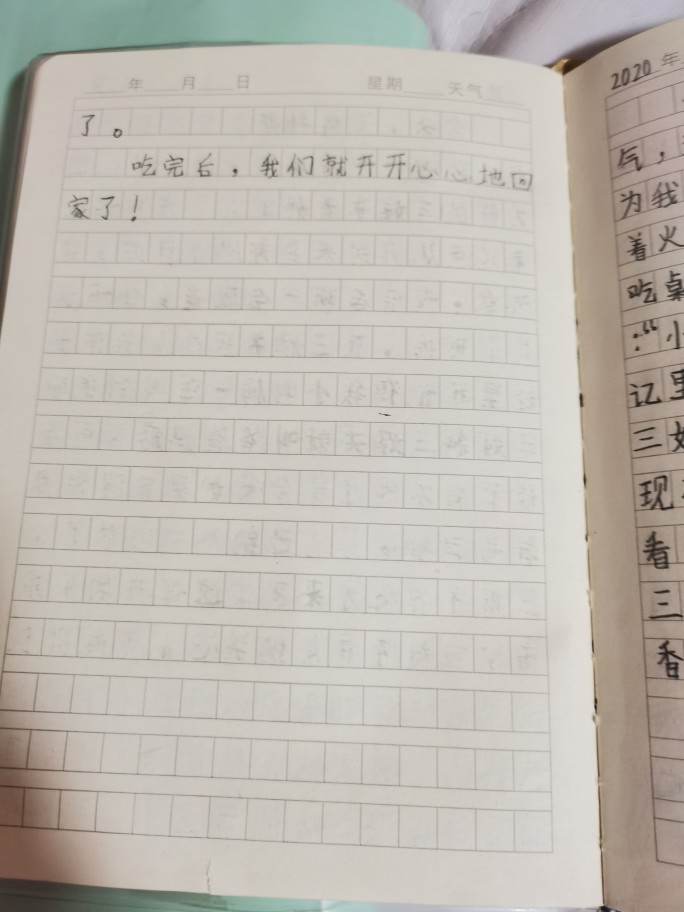 年 月 日 星期 天气
了。
吃完后，我们就开开心心地回
家了！
2020 年
气，
为我
着火
吃桌
:“小
记里
三好
现
看
三
香